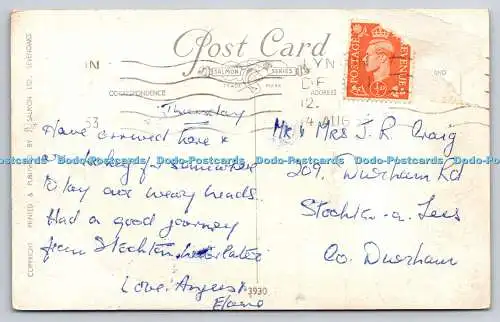 Post Card
SALMON SERIES
TRADE MARK
CORRESPONDENCE
ADDRESS
AND
IN
LYN
12.
AUG
53
POSTAGE REVENUE
COPYRIGHT PRINTED & PUBLISHED BY J. SALMON LTD., SEVENOAKS
Thursday
Have arrived here &
are looking for somewhere
to lay our weary heads.
Had a good journey
from Stockton,
Love. Angus &
Elaine
Mr & Mrs J. R. Craig
209. Durham Rd
Stockton-on-Tees
Co. Durham
3930
Dodo-Postcards Dodo-Postcards Dodo-Postcards Dodo-Postcards Dodo-Postcards Dodo-Postcards